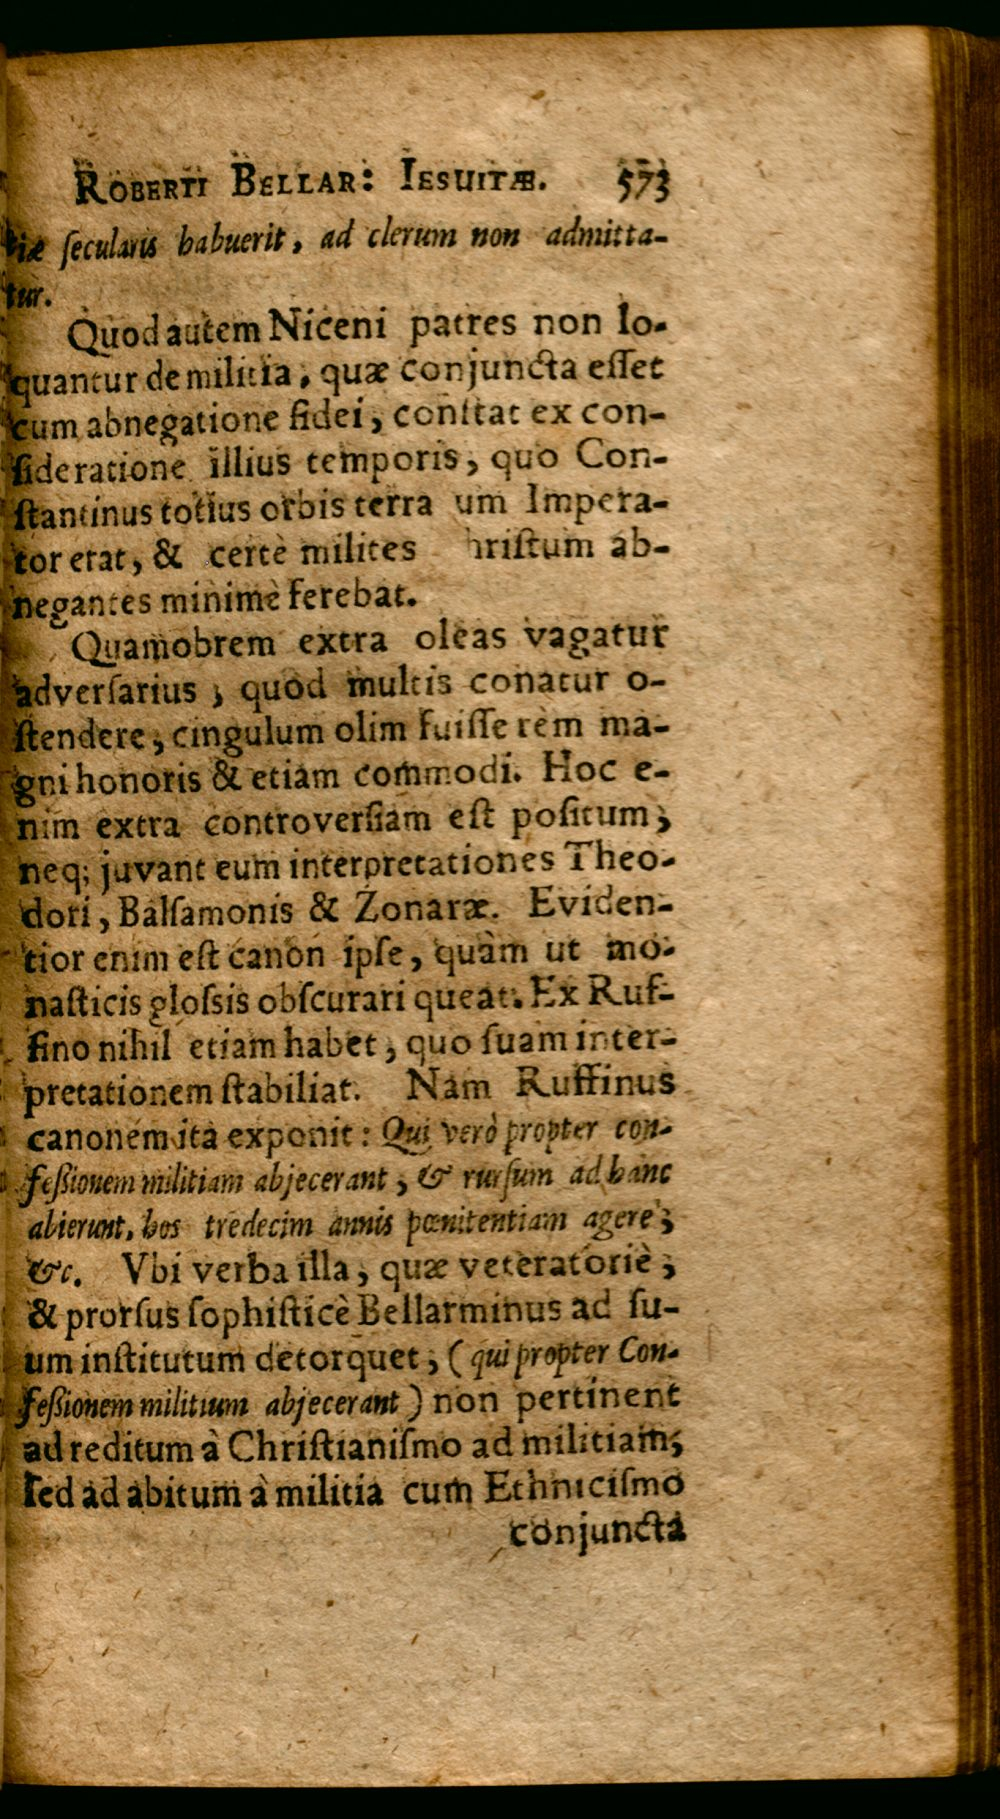 ROBERTI BELLAR: IESUITÆ. 573
tiæ ſecularis habuerit, ad clerum non admitta-
tur.
Quod autem Niceni patres non lo-
quantur de militia, quæ conjuncta eſſet
cum abnegatione fidei, conſtat ex con-
ſideratione illius temporis, quo Con-
ſtantinus totius orbis terra um Impera-
tor erat, & certè milites hriſtum ab-
negantes minimè ferebat.
Quamobrem extra oleas vagatur
adverſarius, quòd multis conatur o-
ſtendere, cingulum olim fuiſſe rem ma-
gni honoris & etiam commodi. Hoc e-
nim extra controverſiam eſt poſitum,
neq; juvant eum interpretationes Theo-
dori, Balſamonis & Zonaræ. Eviden-
tior enim eſt canon ipſe, quàm ut mo-
naſticis gloſsis obſcurari queat. Ex Ruf-
fino nihil etiam habet, quo ſuam inter-
pretationem ſtabiliat. Nam Ruffinus
canonem ita exponit: Qui verò propter con-
feßionem militiam abjecerant, & rurſum ad hanc
abierunt, hos tredecim annis pœnitentiam agere,
&c. Vbi verba illa, quæ veteratoriè,
& prorſus ſophiſticè Bellarminus ad ſu-
um inſtitutum detorquet, (qui propter Con-
feßionem militium abjecerant) non pertinent
ad reditum à Chriſtianiſmo ad militiam,
ſed ad abitum à militia cum Ethniciſmo
conjuncta